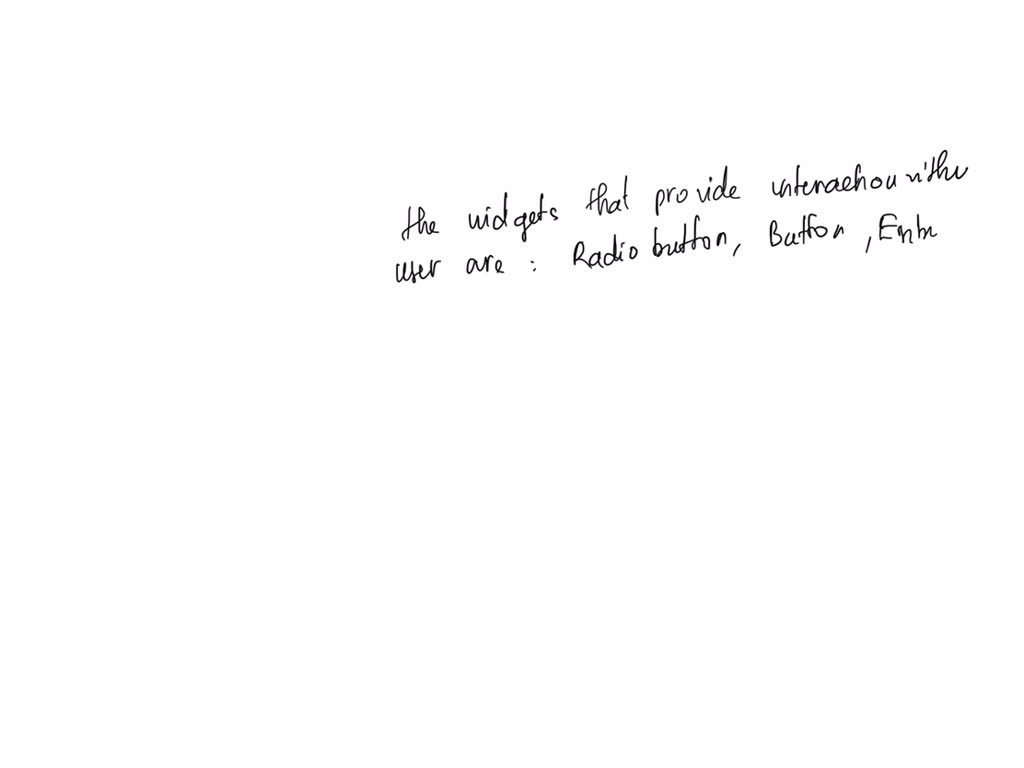 the widgets that provide interaction with
user are : Radio button, Button , Entr